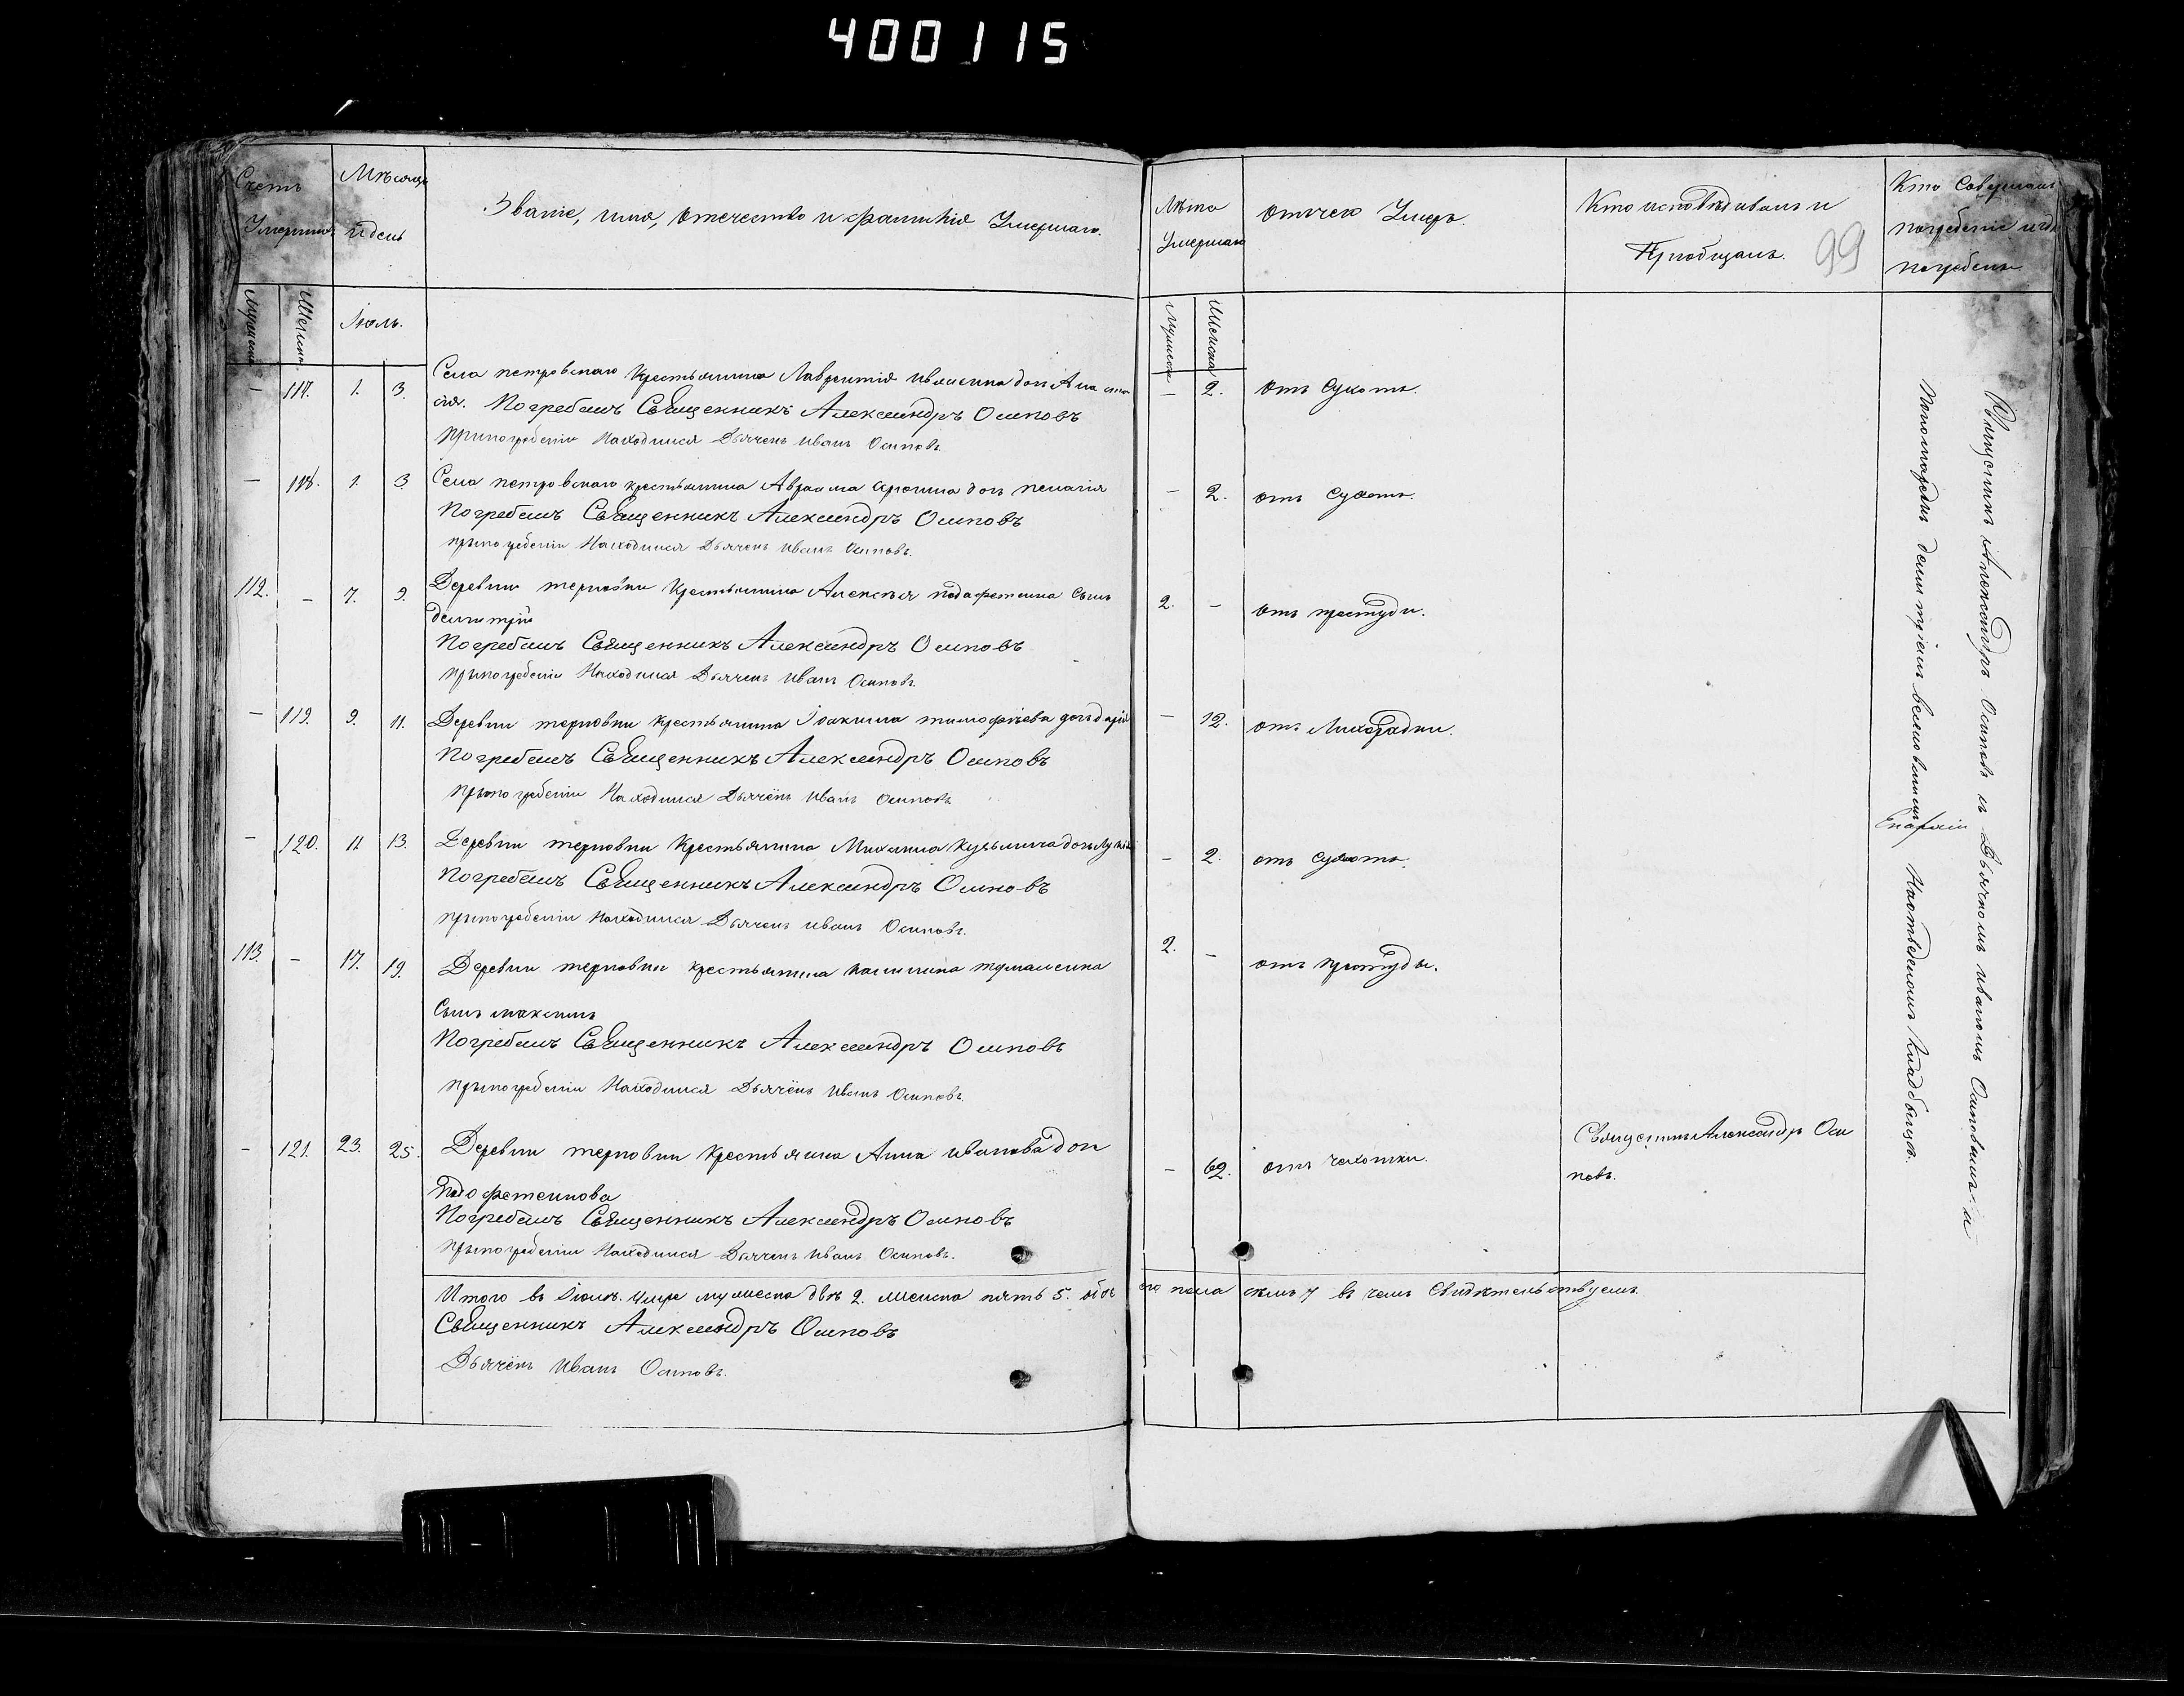 400115
Счетъ Умершихъ
Мѣсяцъ и день
Званіе, имя, отечество и фамилія Умершаго.
Лѣта Умершаго
Отчего Умеръ.
Кто исповѣдывалъ и Пріобщалъ.
99
Кто Совершалъ погребеніе и гдѣ погребены.
Мужеска
Женска
Іюль.
Мужеска
Женска
— 117. 1. 3. Села петровскаго Крестьянина Лаврентія дочь Анаста — 2. отъ Сухоты.
сія. Погребалъ Священникъ Александръ Осиповъ
При погребеніи Находился Дьячекъ Иванъ Осиповъ.
— 118. 1. 3 Села петровскаго крестьянина Авраама дочь пелагія — 2. отъ Сухоты.
Погребалъ Священникъ Александръ Осиповъ
при погребеніи Находился Дьячекъ Иванъ Осиповъ.
112. — 7. 9. Деревни терновки Крестьянина Алексѣя Сынъ 2. — отъ простуды.
димитрій
Погребалъ Священникъ Александръ Осиповъ
При погребеніи Находился Дьячекъ Иванъ Осиповъ.
— 119. 9. 11. Деревни терновки крестьянина Іоакима тимофѣева дочь дарія — 12. отъ Лихорадки.
Погребалъ Священникъ Александръ Осиповъ
При погребеніи Находился Дьячёкъ Иванъ Осиповъ
— 120. 11 13. Деревни терновки Крестьянина Михаила Кузьмича дочь — 2. отъ сухоты.
Погребалъ Священникъ Александръ Осиповъ
при погребеніи Находился Дьячекъ Иванъ Осиповъ.
113. — 17. 19. Деревни терновки крестьянина 2. — отъ простуды.
Сынъ максимъ
Погребалъ Священникъ Александръ Осиповъ
При погребеніи Находился Дьячёкъ Иванъ Осиповъ.
— 121. 23. 25. Деревни терновки Крестьянка Анна Иванова доч — 62. отъ чахотки. Священникъ Александръ Оси
повъ.
Погребалъ Священникъ Александръ Осиповъ
При погребеніи Находился Дьячекъ Иванъ Осиповъ.
Итого въ Іюлѣ. умре мужеска двѣ 2. женска пять 5. обое го пола семь 7 въ чемъ Свидѣтельствуемъ.
Священникъ Александръ Осиповъ
Дьячёкъ Иванъ Осиповъ.
Священникъ Александръ Осиповъ съ Дьячкомъ иваномъ Осиповымъ. и
Пономаремъ димитріемъ На отведенномъ Кладбищѣ.